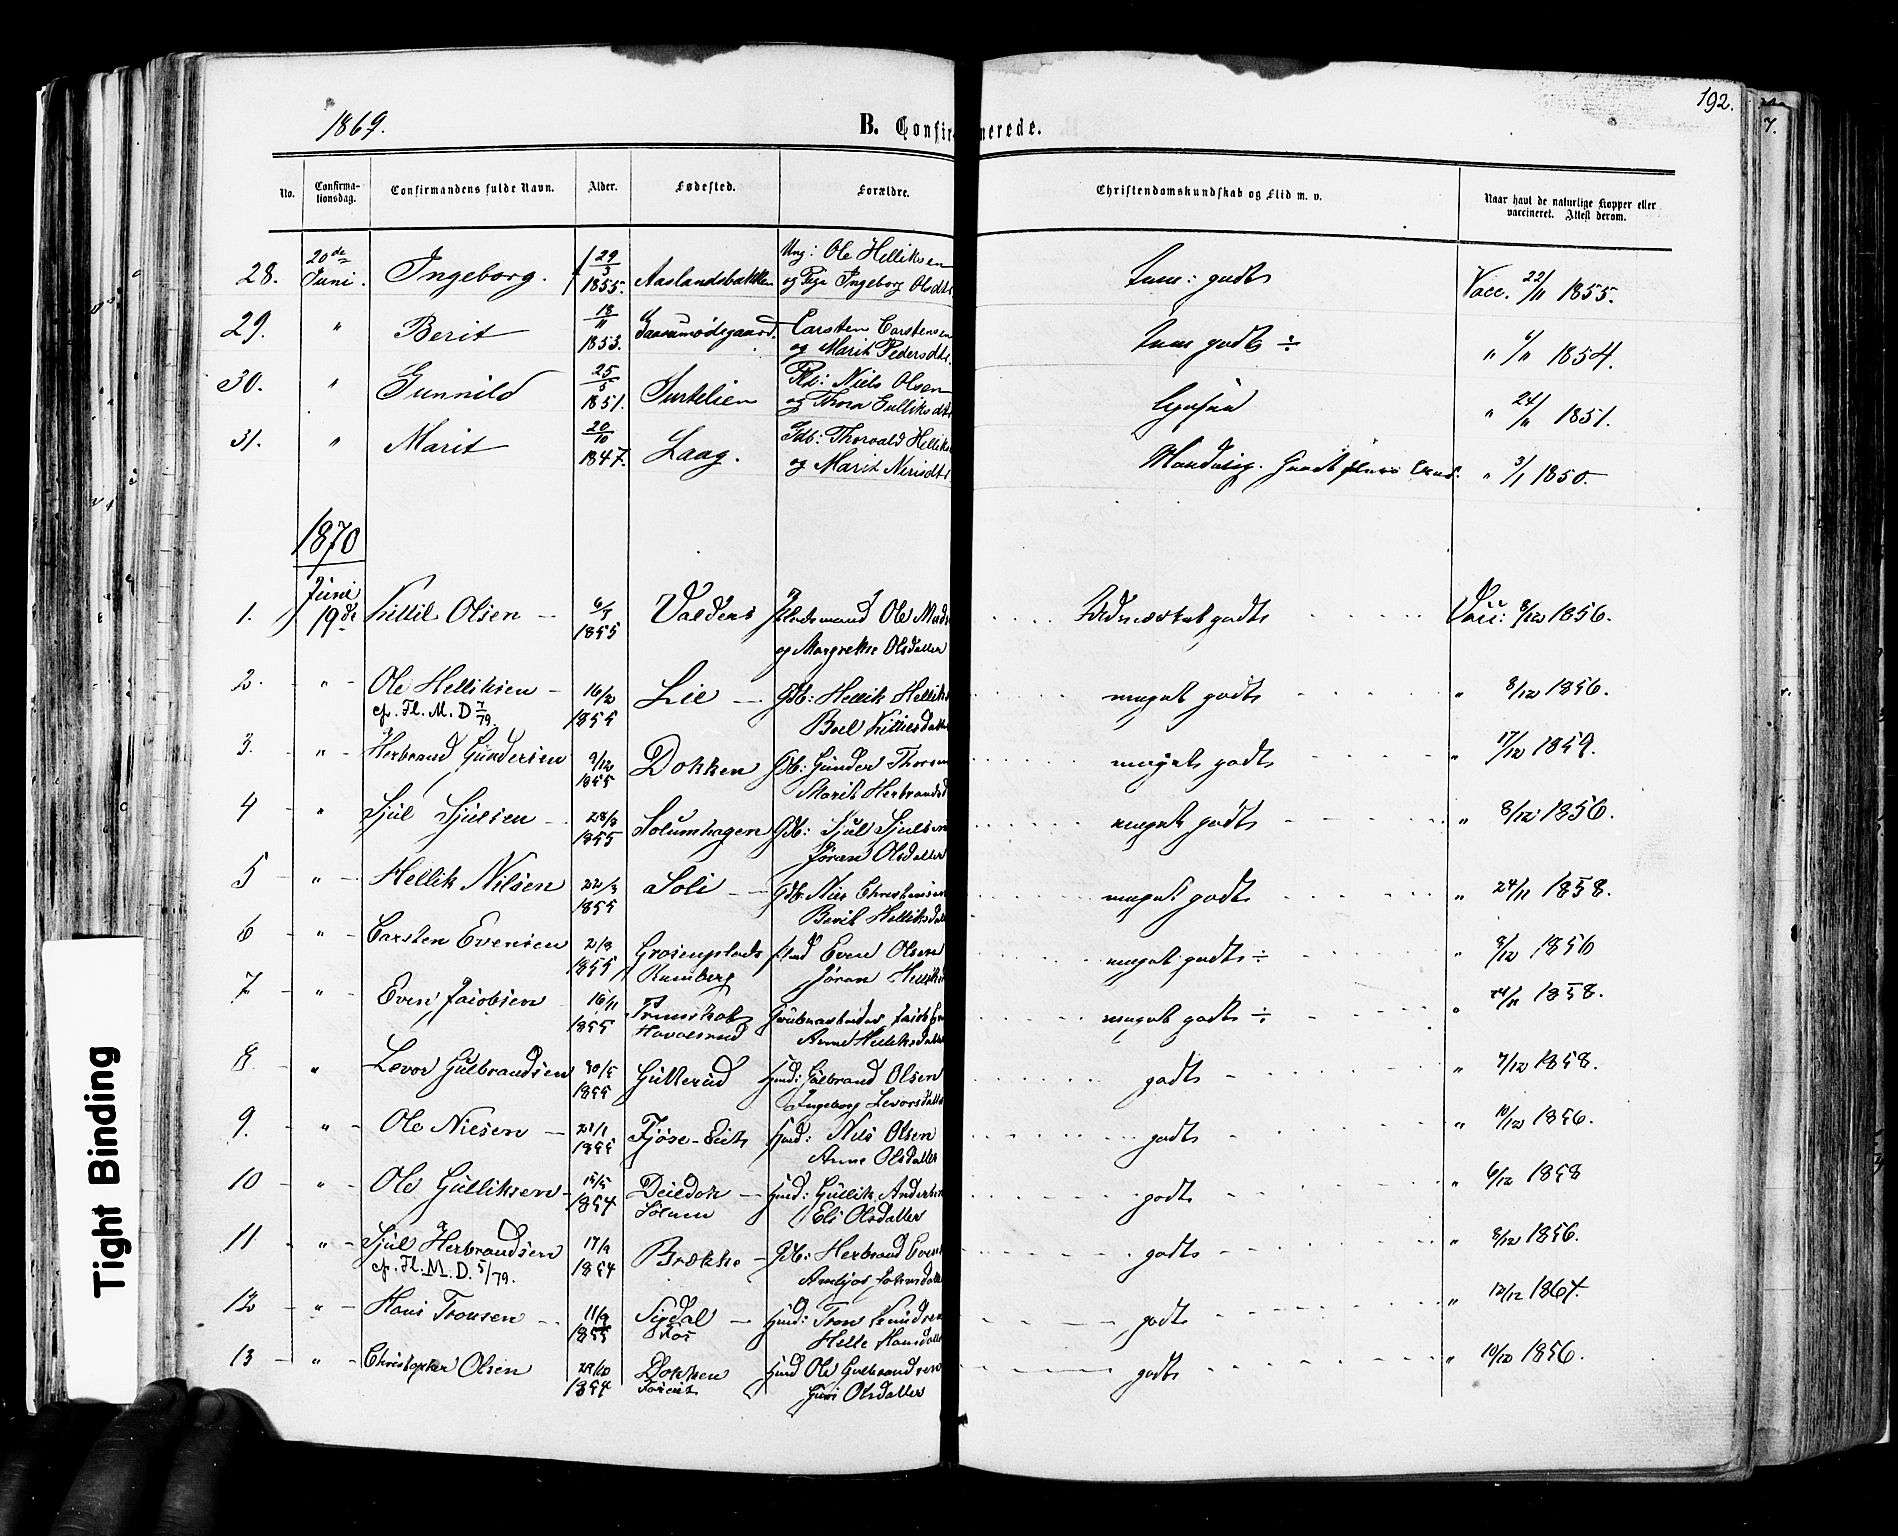 1869.
B. Confir
merede.
192.
7.
No.
Confirma-
tionsdag.
Confirmandens fulde Navn.
Alder.
Fødested.
Forældre.
Christendomskundskab og Flid m. v.
Naar havt de naturlige Kopper eller
vaccineret. Attest derom.
28. 20de Juni. Ingeborg. 29/3 1855. Aaslandsbakken Ung: Ole Helliksen
og Pige Ingeborg Olsdt godt Vacc. 22/11 1855.
29. " Berit 13/11 1853. Carsten Carstensen
og Marit Pedersdt. godt ÷ " 1854.
30. " Gunnild 25/5 1851. Surtelien Niels Olsen
og Thora Gulliksdt " 24/11 1851.
31. " Marit 20/10 1847. Laag. Gdb: Thorvald Hellik
og Marit Nerisdt " 3/1 1850.
1870
1. Juni 19de Kittil Olsen 6/5 1855 Valdens Pladsmand Ole Mads
og Margrethe Olsdatter godt Vacc: 8/12 1856.
2. " Ole Helliksen 16/2 1855 Lie Gdb: Hellik Hellik
cfr. Fl. M. D 7/79. Boel Kittilsdatt meget godt " 8/12 1856.
3. " Herbrand Gundersen 9/12 1855 Dokken Gb: Gunder Thorsen
Marit Herbrandsd meget godt " 17/12 1859.
4 " Sjul Sjulsen 28/3 1855 Solumhagen Gdb: Sjul Sjulsen
Jøran Olsdatter meget godt " 8/12 1856.
5 " Hellik Nilsen 22/3 1855 Soli Gdb: Nils Christensen
Berit Helliksdatt meget godt " 24/11 1858.
6 " Carsten Evensen 21/3 1855 Grosenplads Even Olsen
Ramberg Jøran Helliksd meget godt ÷ " 8/12 1856
7 " Even Jacobsen 16/11 1855
Anne Helliksdatt meget godt ÷ " 1858.
8. " Levor Gulbrandsen 30/5 1855 Gutterud Hmd: Gulbrand Olsen
Ingeborg Levorsdatt godt " 7/12 1858.
9. " Ole Nielsen 21/1 1855 Fjøse-Eiet Hmd: Nils Olsen
Anne Olsdatter godt " 10/12 1856.
10 " Ole Gulliksen 15/5 1854 Deildok Hmd: Gullik Anders
Solum Eli Olsdatter godt " 6/12 1858
11 " Sjul Herbrandsen 17/9 1854 Brække Gdb: Herbrand Even
cfr. Fl. M. D. 5/79. godt " 8/12 1856.
12 " Hans Tronsen 11/3 1855 Sigdal Hmd: Tron Knudsen
Helle Hansdatt godt " 12/12 1867.
13 " Christopher Olsen 29/10 1854 Dokken Hmd Ole Gulbrandsen
Guri Olsdatter godt " 10/12 1856.
Tight Binding